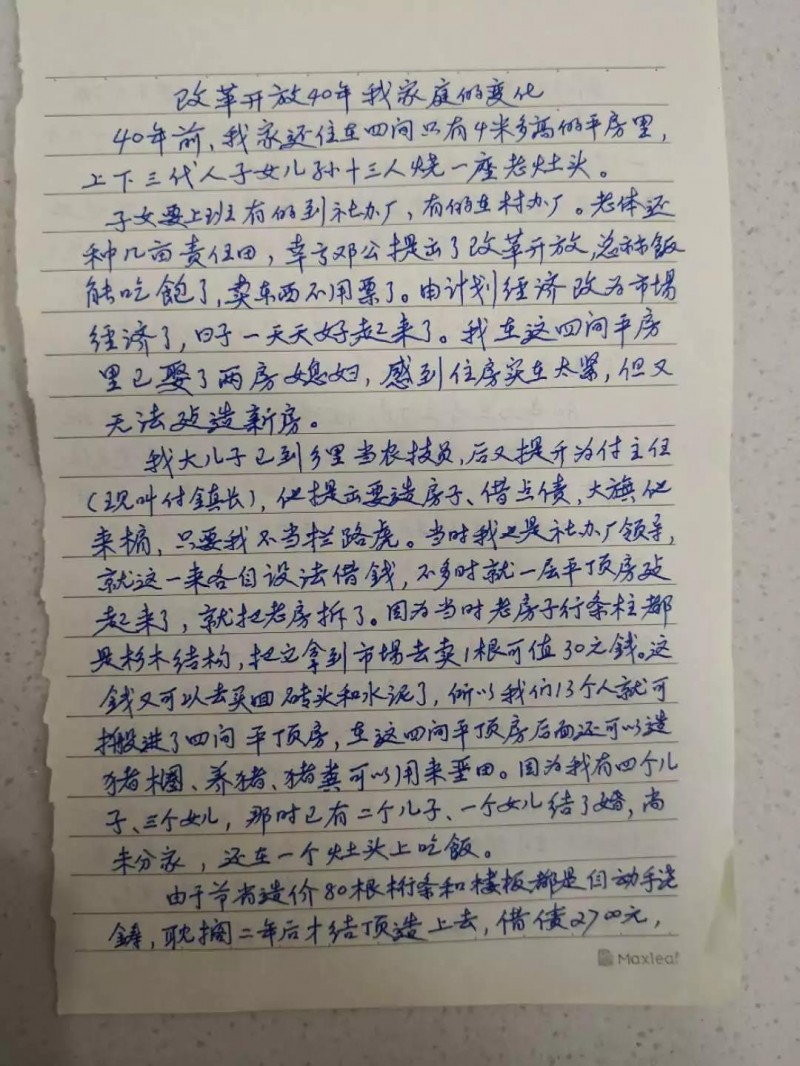 改革开放40年我家庭的变化
40年前，我家还住在四间只有4米多高的平房里，
上下三代人子女儿孙十三人烧一座老灶头。
子女要上班有的到社办厂，有的在村办厂。老体还
种几亩责任田，幸亏邓公提出了改革开放，总称饭
能吃饱了，卖东西不用票了。由计划经济改为市场
经济了，日子一天天好起来了。我在这四间平房
里已娶了两房媳妇，感到住房实在太紧，但又
无法改造新房。
我大儿子已到乡里当农技员，后又提升为付主任
（现叫付镇长），他提出要造房子、借点债，大旗他
来摘，只要我不当拦路虎。当时我也是社办厂领导，
就这一来各自设法借钱，不多时就一层平顶房造
起来了，就把老房拆了。因为当时老房子行条柱都
是杉木结构，把它拿到市场去卖1根可值30元钱。这
钱又可以去买回砖头和水泥了，所以我们13个人就可
搬进了四间平顶房，在这四间平顶房后面还可以造
猪棚、养猪、猪粪可以用来垩田。因为我有四个儿
子、三个女儿，那时已有二个儿子、一个女儿结了婚，尚
未分家，还在一个灶头上吃饭。
由于节省造价80根桁条和楼板都是自动手浇
铸，耽搁二年后才结顶造上去，借债2700元，
Maxleaf